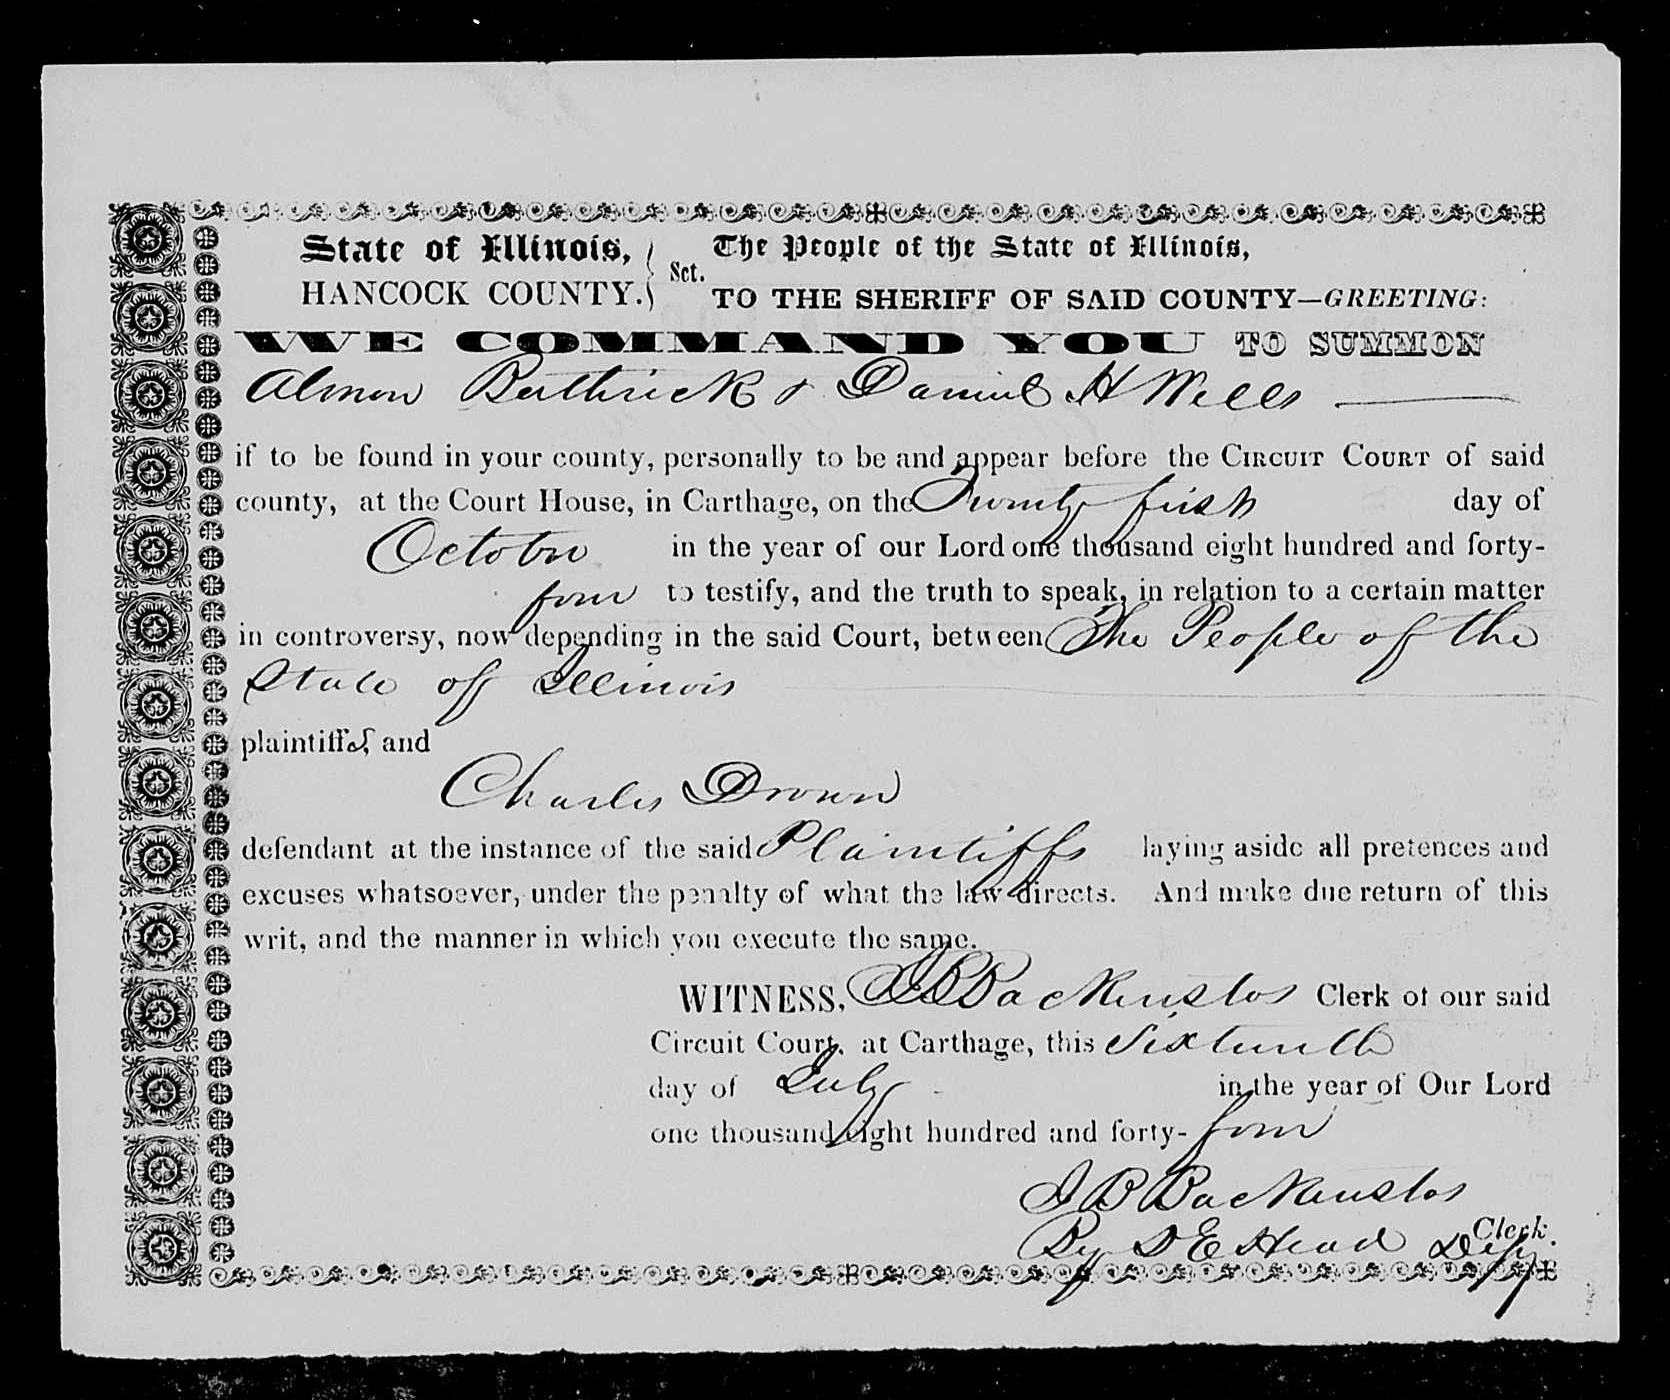 State of Illinois, } Sct. The People of the State of Illinois,
HANCOCK COUNTY. TO THE SHERIFF OF SAID COUNTY—GREETING:
WE COMMAND YOU TO SUMMON
Almon Buthrick & Daniel H Wells
if to be found in your county, personally to be and appear before the CIRCUIT COURT of said
county, at the Court House, in Carthage, on the Twenty first day of
October in the year of our Lord one thousand eight hundred and forty-
four to testify, and the truth to speak, in relation to a certain matter
in controversy, now depending in the said Court, between The People of the
State of Illinois
plaintiffs, and
Charles Drown
defendant at the instance of the said Plaintiffs laying aside all pretences and
excuses whatsoever, under the penalty of what the law directs. And make due return of this
writ, and the manner in which you execute the same.
WITNESS, J B Backenstos Clerk of our said
Circuit Court, at Carthage, this Sixteenth
day of July in the year of Our Lord
one thousand eight hundred and forty-four
J B Backenstos
Clerk.
By D E Head Depy